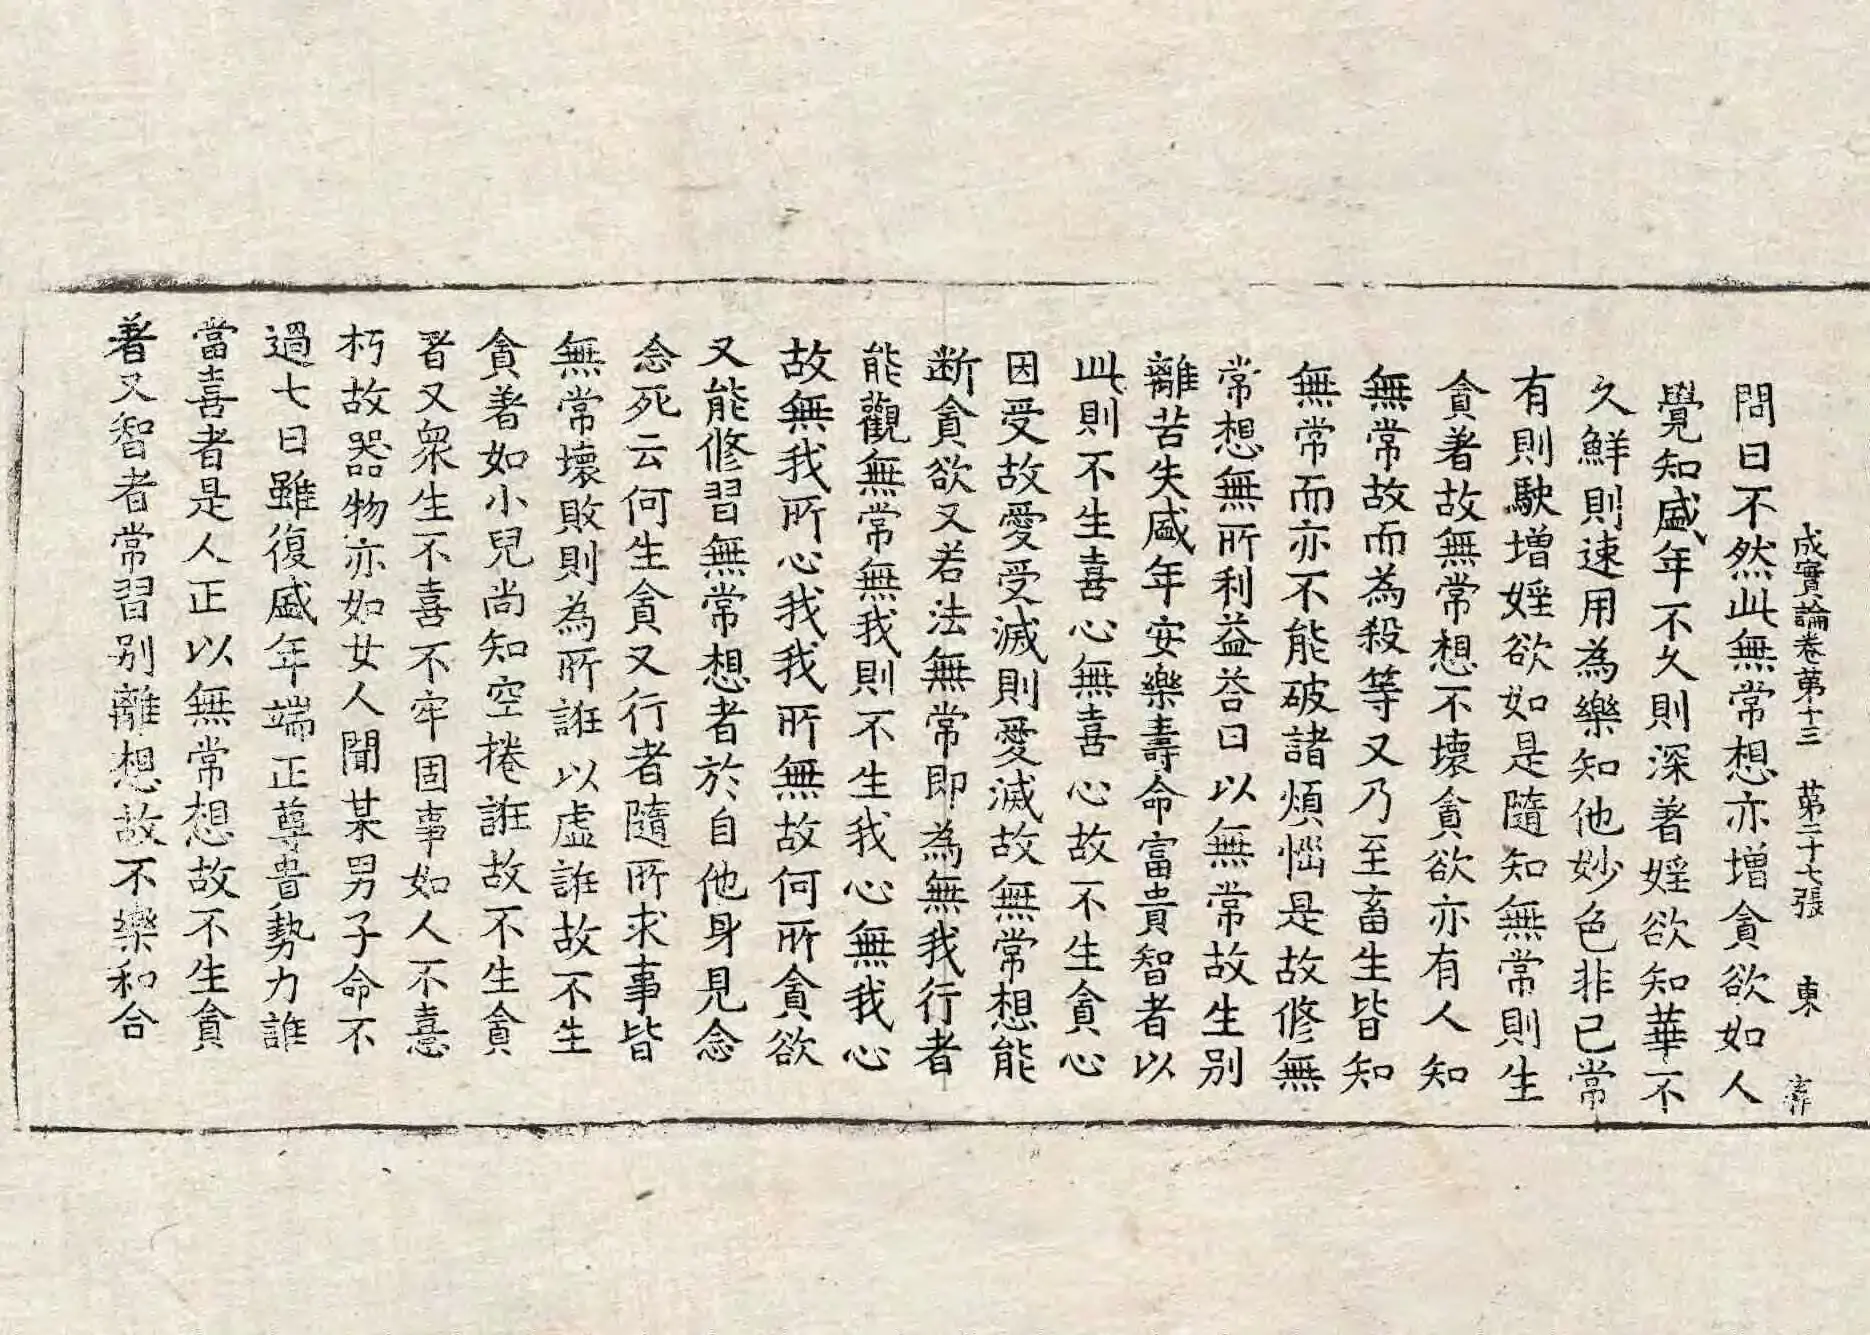 成實論卷第十三 第二十七張 東
問曰不然此無常想亦增貪欲如人
覺知盛年不久則深著婬欲知華不
久鮮則速用為樂知他妙色非已常
有則駛增婬欲如是隨知無常則生
貪著故無常想不壞貪欲亦有人知
無常故而為殺等又乃至畜生皆知
無常而亦不能破諸煩惱是故修無
常想無所利益荅曰以無常故生別
離苦失盛年安樂壽命富貴智者以
此則不生喜心無喜心故不生貪心
因受故愛受滅則愛滅故無常想能
斷貪欲又若法無常即為無我行者
能觀無常無我則不生我心無我心
故無我所心我我所無故何所貪欲
又能修習無常想者於自他身見念
念死云何生貪又行者隨所求事皆
無常壞敗則為所誑以虛誑故不生
貪著如小兒尚知空捲誑故不生貪
著又衆生不喜不牢固事如人不憙
朽故器物亦如女人聞某男子命不
過七日雖復盛年端正尊貴勢力誰
當喜者是人正以無常想故不生貪
著又智者常習別離想故不樂和合